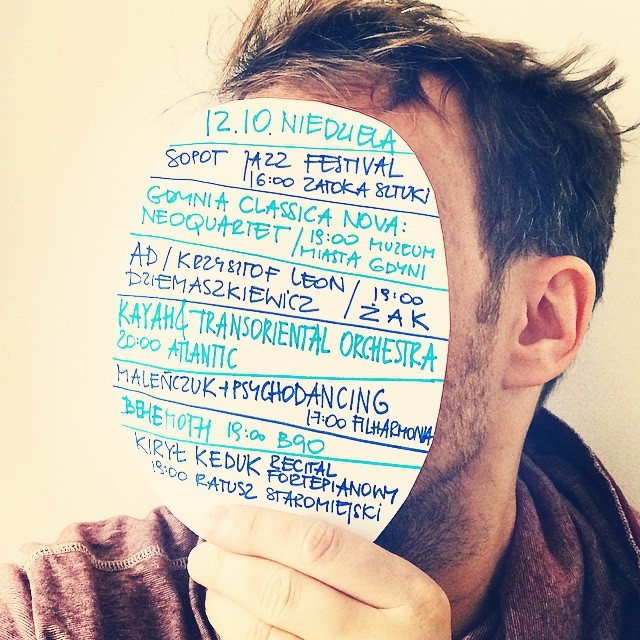 12.10. NIEDZIELA
SOPOT JAZZ FESTIVAL
16:00 ZATOKA SZTUKI
GDYNIA CLASSICA NOVA:
NEOQUARTET / 19:00 MUZEUM
MIASTA GDYNI
AD / KRZYSZTOF LEON
DZIEMASZKIEWICZ / 19:00
ŻAK
KAYAH & TRANSORIENTAL ORCHESTRA
20:00 ATLANTIC
MALEŃCZUK + PSYCHODANCING
17:00 FILHARMONIA
BEHEMOTH 19:00 B90
KIRYŁ KEDUK RECITAL
FORTEPIANOWY
19:00 RATUSZ STAROMIEJSKI